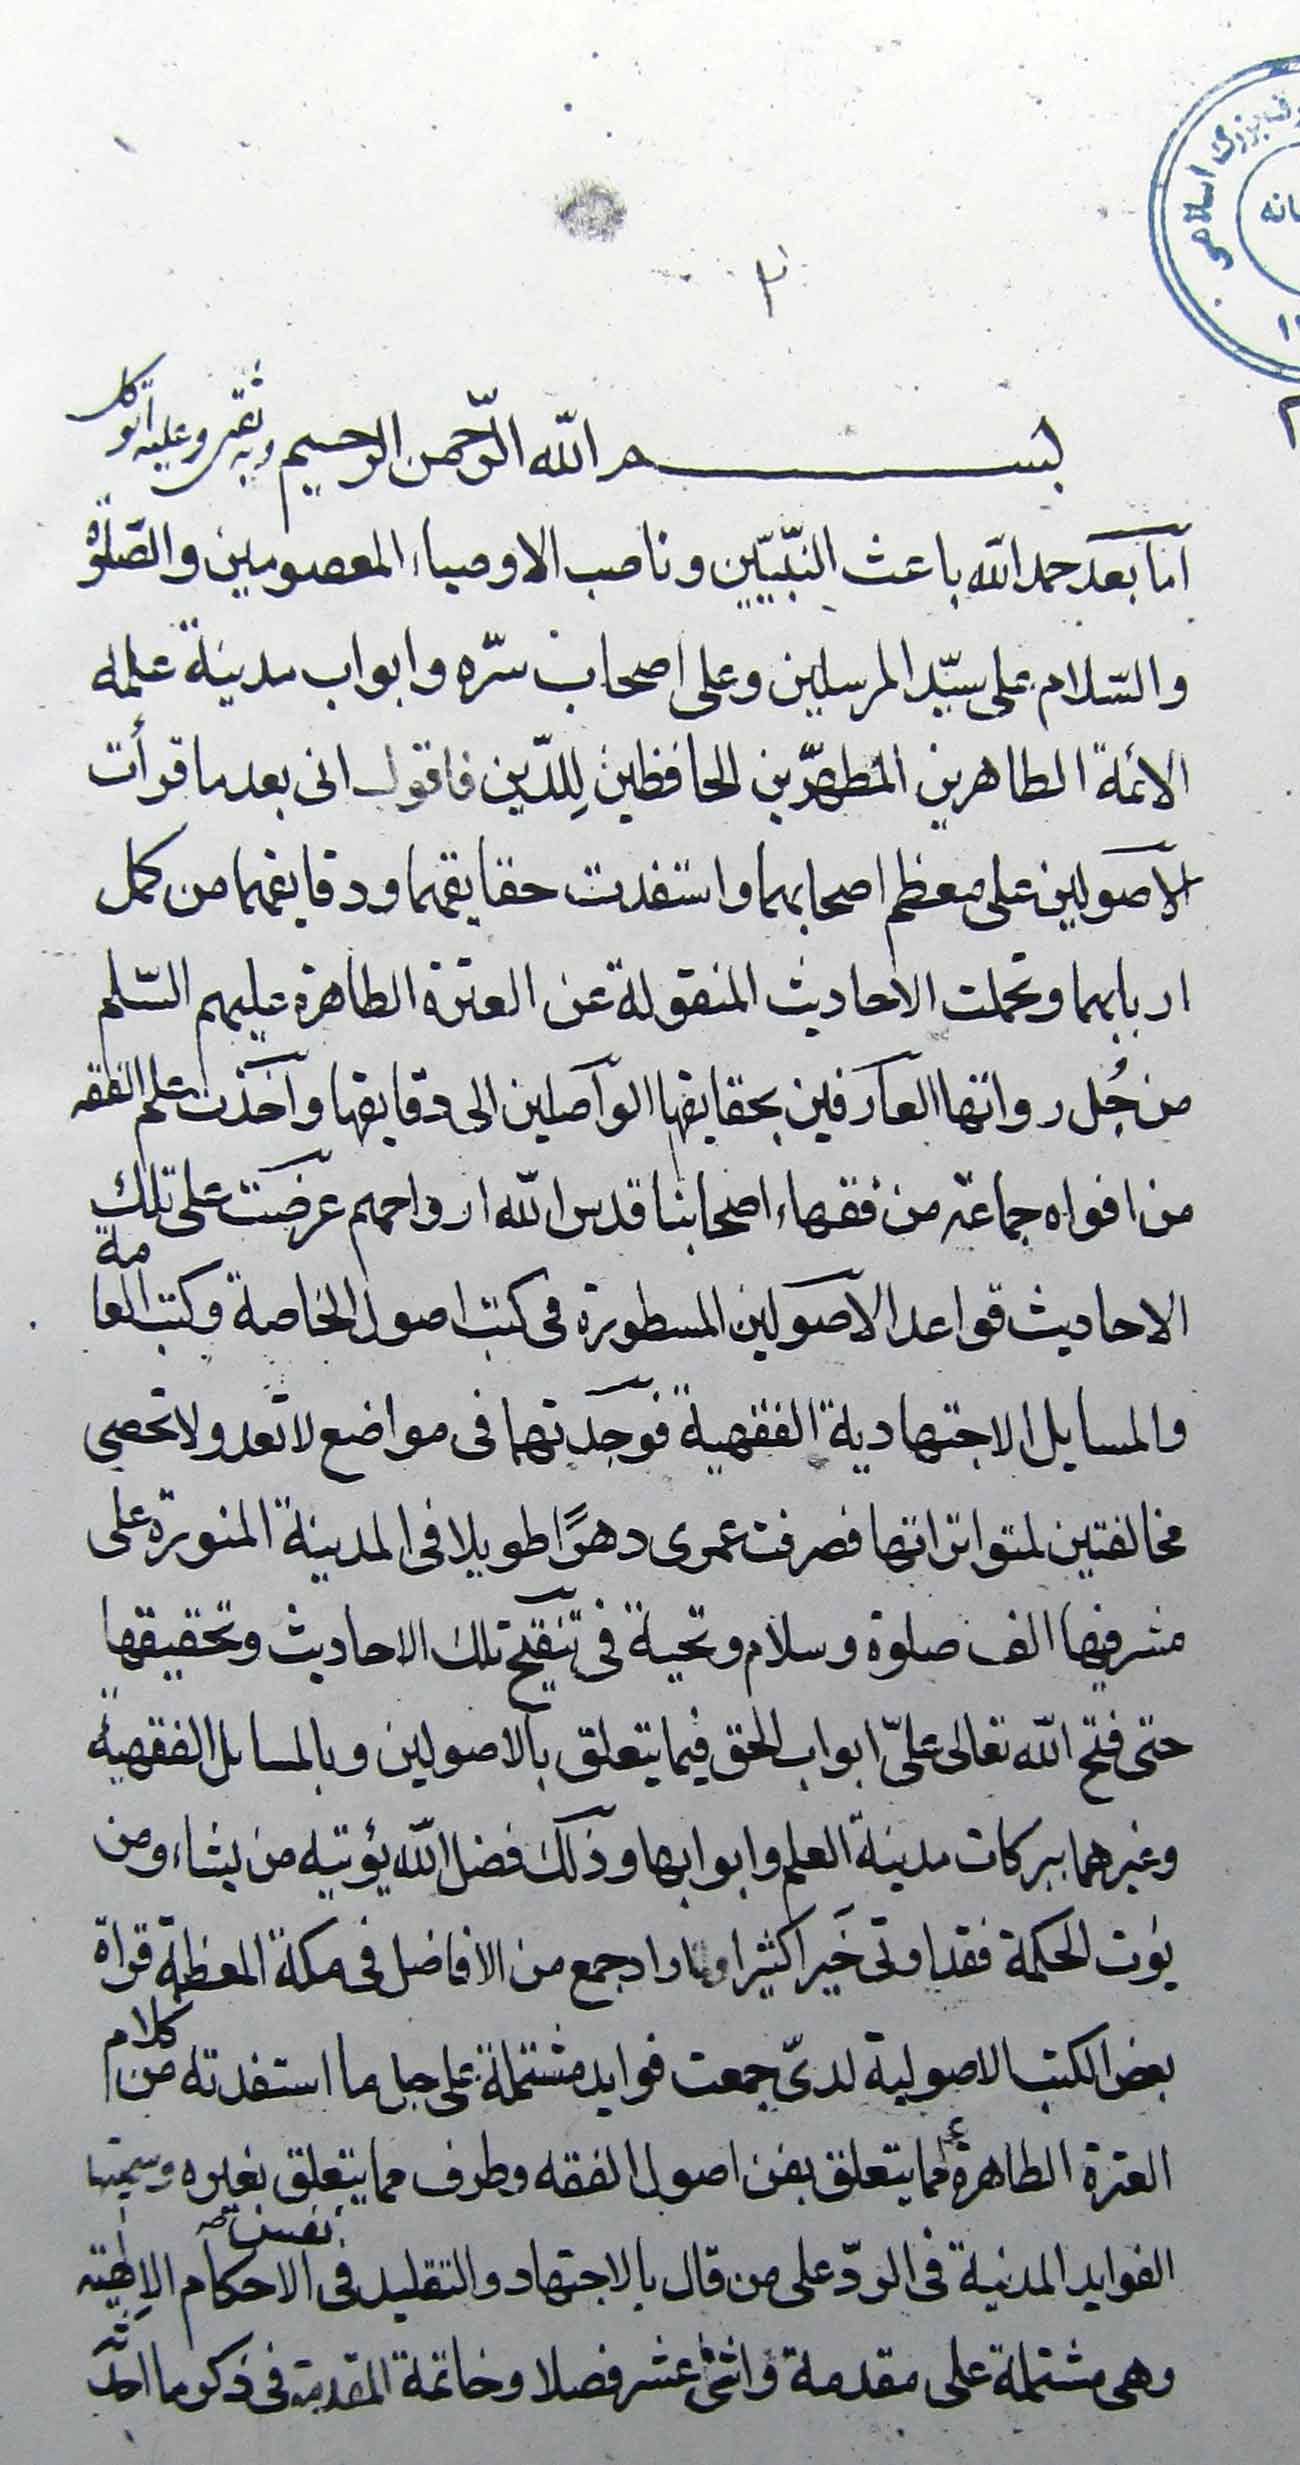 ٣
بسم الله الرّحمن الرحيم وبه ثقتى وعليه اتوكل
امّا بعد حمد الله باعث النّبيّين وناصب الاوصياء المعصومين والصّلوة
والسّلام على سيّد المرسلين وعلى اصحاب سرّه وابواب مدينة علمه
الائمة الطاهرين المطهّرين الحافظين لِلدّين فاقول انى بعد ما قرأت
الاصولين على معظم اصحابهما واستفدت حقايقهما ودقايقهما من كمل
اربابهما وتحملت الاحاديث المنقولة عن العترة الطاهرة عليهم السّلم
من جُل رواتها العارفين بحقايقها الواصلين الى دقايقها واخذت علم الفقه
من افواه جماعة من فقهاء اصحابنا قدس الله ارواحهم عرضت على تلك
الاحاديث قواعد الاصولين المسطورة فى كتب اصول الخاصة وكتب العامة
والمسايل الاجتهادية الفقهية فوجدتهما فى مواضع لا تعد ولا تحصى
مخالفتين لمتواتراتها فصرفت عمرى دهرًا طويلا فى المدينة المنورة على
مشرفيها الف صلوة وسلام وتحية فى تنقيح تلك الاحاديث وتحقيقها
حتى فتح الله تعالى علىّ ابواب الحق فيما يتعلق بالاصولين وبالمسائل الفقهية
وغيرهما ببركات مدينة العلم وابوابها وذلك فضل الله يؤتيه من يشاء ومن
يؤت الحكمة فقد اوتى خَيرا كثيرا ولما اراد جمع من الافاضل فى مكة المعظمة قراة
بعض الكتب الاصولية لدىّ جمعت فوايد مشتملة على جل ما استفدته من كلام
العترة الطاهرة ع مما يتعلق بفن اصول الفقه وطرف مما يتعلق بغيره وسميتها
الفوايد المدنية فى الردّ على من قال بالاجتهاد والتقليد فى نفس الاحكام الالهية
وهى مشتملة على مقدمة واثنى عشر فصلا وخاتمة المقدمة فى ذكر ما احدثه